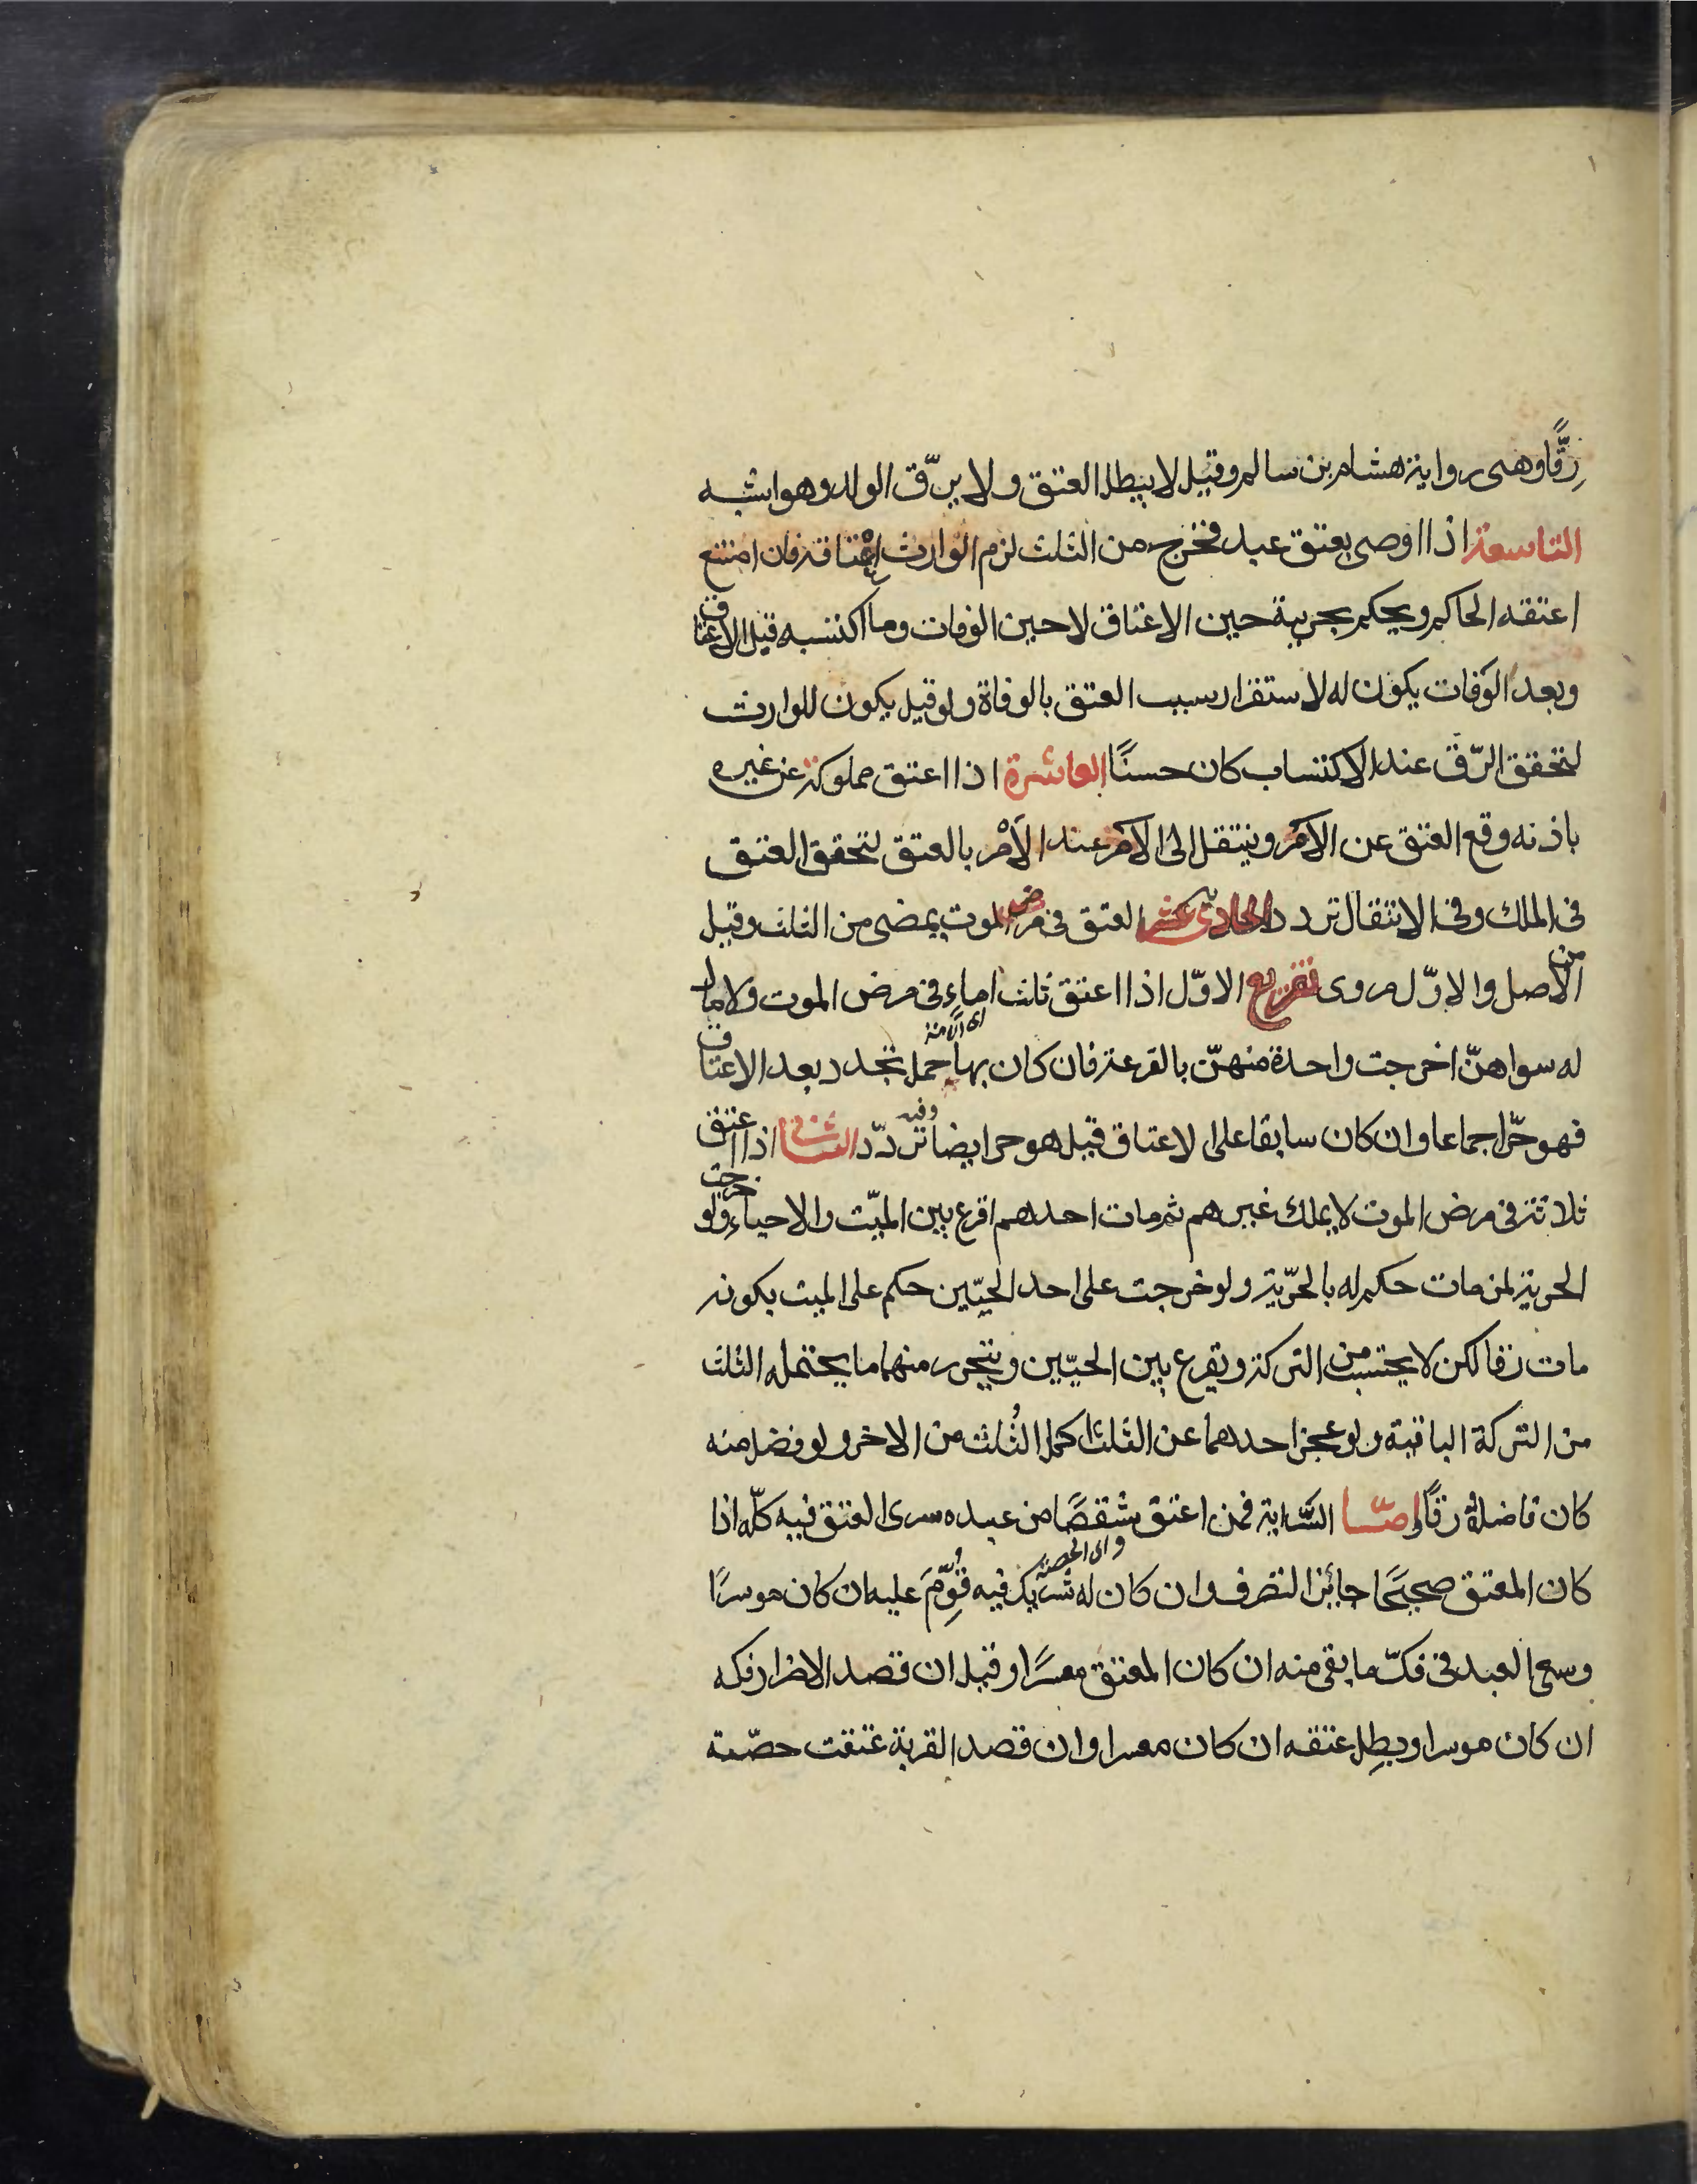 رِقًّا وهى رواية هشام بن سالم وقيل لا يبطل العتق ولا يرّق الولد وهو اشبه
التاسعة اذا اوصى بعتق عبد فخرج من الثلث لزم الوارث اعتاقه فان امتنع
اعتقه الحاكم ويحكم بحريته حين الاعتاق لا حين الوفات وما اكتسبه قبل الاعتاق
وبعد الوفات يكون له لاستقرار سبب العتق بالوفاة ولو قيل يكون للوارث
لتحقق الرّق عند الاكتساب كان حسنًا العاشرة اذا اعتق مملوكه عن غيره
باذنه وقع العتق عن الامر وينتقل الى الامر عند الاَمْر بالعتق لتحقق العتق
فى الملك وفى الانتقال تردد الحادى عشر العتق فى مرض الموت يمضى من الثلث وقيل
من الاصل والاوّل مروى تفريع الاوّل اذا اعتق ثلث اماءِ فى مرض الموت ولا مال
له سواهنّ اخرجت واحدة منهنّ بالقرعة فان كان بها اى الامة حمل تجدد بعد الاعتاق
فهو حرّ اجماعا وان كان سابقا على الاعتاق قيل هو حر ايضا وفيه تردّد الثانى اذا اعتق
ثلاثة فى مرض الموت لا يملك غيرهم ثم مات احدهم اقرع بين الميّت والاحياءِ ولو خرجت
الحرية لمن مات حكم له بالحرّية ولو خرجت على احد الحيّين حكم على الميت بكونه
مات رقا لكن لا يحتسب من التركة ويقرع بين الحيّين ويتحرر منهما ما يحتمله الثلث
من التركة الباقية ولو عجز احدهما عن الثلث اكمل الثُلث من الاخر ولو فضل منه
كان فاضله رقًا وامّا السّراية فمن اعتق شقصًا من عبده سرى العتق فيه كلّه اذا
كان المعتق صحيحًا جائز التصرف وان كان له شريك فيه قُوِّمَ عليه ان كان موسرًا
وسعى العبد فى فكّ ما بقى منه ان كان المعتق معسرًا وقيل ان قصد الاضرار فكه
ان كان موسرا وبطل عتقه ان كان معسرا وان قصد القربة عتقت حصّته